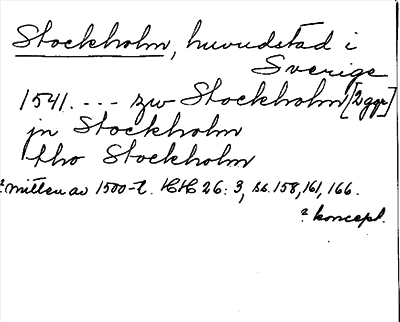 Stockholm, huvudstad i
Sverige
1541. --- zw Stockholm [2 ggr]
jn Stockholm
tho Stockholm
mitten av 1500-t. HH 26:3, ss. 158, 161, 166.
koncept.